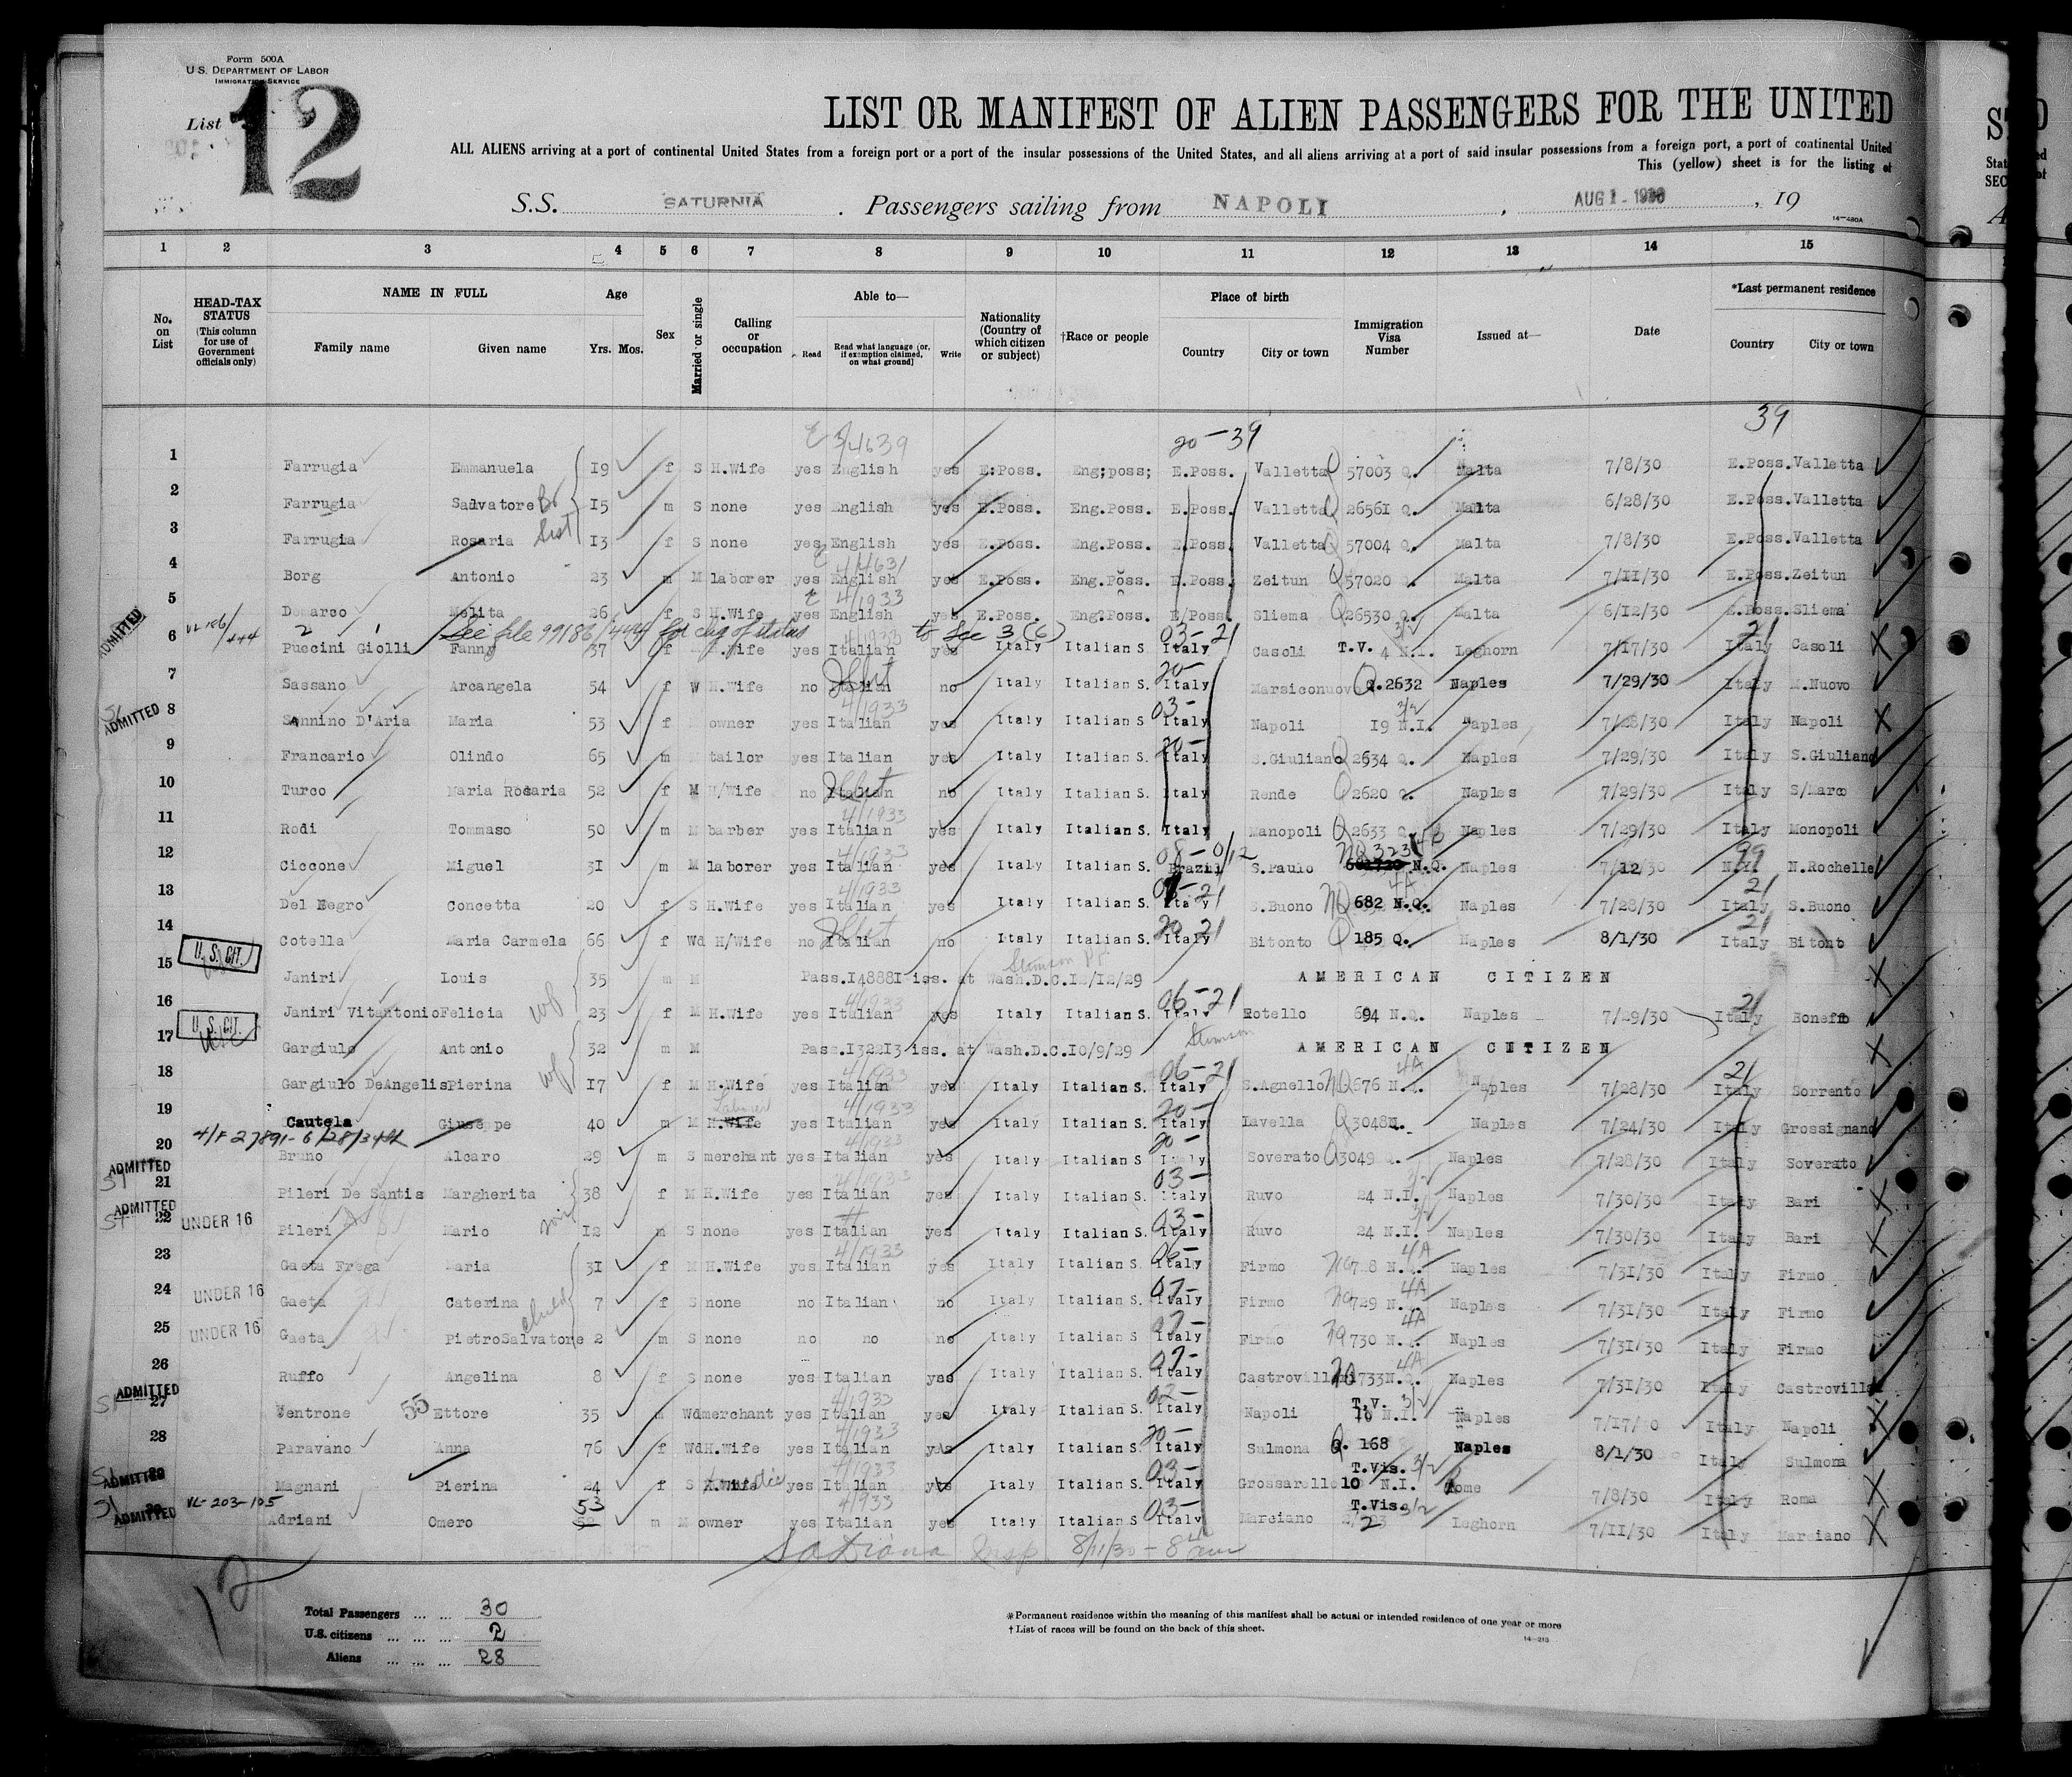 Form 500A
U.S. DEPARTMENT OF LABOR
IMMIGRATION SERVICE
List 12
LIST OR MANIFEST OF ALIEN PASSENGERS FOR THE UNITED
ALL ALIENS arriving at a port of continental United States from a foreign port or a port of the insular possessions of the United States, and all aliens arriving at a port of said insular possessions from a foreign port, a port of continental United
This (yellow) sheet is for the listing of
S.S. SATURNIA . Passengers sailing from NAPOLI , AUG 1 - 1930 , 19
14—480A
1 2 3 4 5 6 7 8 9 10 11 12 13 14 15
No. on List
HEAD-TAX STATUS (This column for use of Government officials only)
NAME IN FULL
Family name Given name
Age
Yrs. Mos.
Sex
Married or single
Calling or occupation
Able to—
Read Read what language (or, if exemption claimed, on what ground) Write
Nationality (Country of which citizen or subject)
†Race or people
Place of birth
Country City or town
Immigration Visa Number
Issued at—
Date
*Last permanent residence
Country City or town
20-39 39
1 Farrugia Emmanuela 19 f S H.Wife yes English yes E.Poss. Eng;poss; E.Poss. Valletta Q 57003 Q. Malta 7/8/30 E.Poss. Valletta
2 Farrugia Salvatore Br 15 m S none yes English yes E.Poss. Eng.Poss. E.Poss. Valletta Q 26561 Q. Malta 6/28/30 E.Poss. Valletta
3 Farrugia Rosaria Sist 13 f S none yes English yes E.Poss. Eng.Poss. E.Poss. Valletta Q 57004 Q. Malta 7/8/30 E.Poss. Valletta
4 Borg Antonio 23 m M laborer yes English yes E.Poss. Eng.Poss. E.Poss. Zeitun Q 57020 Malta 7/11/30 E.Poss. Zeitun
5 Demarco Melita 26 f S H.Wife yes English yes E.Poss. Eng.Poss. E/Poss. Sliema Q 26530 Q. Malta 6/12/30 E.Poss. Sliema
ADMITTED See file 99186/444 for chg of status to Sec 3 (6) 03-21 21
6 Puccini Giolli Fanny 37 f H.Wife yes Italian yes Italy Italian S. Italy Casoli T.V. 4 N.I. Leghorn 7/17/30 Italy Casoli
7 Sassano Arcangela 54 f W H.Wife no Italian no Italy Italian S. Italy Marsiconuovo Q.2632 Naples 7/29/30 Italy M.Nuovo
ADMITTED 8 Sannino D'Aria Maria 53 f owner yes Italian yes Italy Italian S. Italy Napoli 19 N.I. Naples 7/28/30 Italy Napoli
9 Francario Olindo 65 m M tailor yes Italian yes Italy Italian S. Italy S.Giuliano 2634 Q. Naples 7/29/30 Italy S.Giuliano
10 Turco Maria Rosaria 52 f M H/Wife no Italian no Italy Italian S. Italy Rende Q 2620 Q. Naples 7/29/30 Italy S/Marco
11 Rodi Tommaso 50 m M barber yes Italian yes Italy Italian S. Italy Manopoli Q 2633 Q Naples 7/29/30 Italy Monopoli
12 Ciccone Miguel 31 m M laborer yes Italian yes Italy Italian S. Brazil S.Paulo NQ 323 N.Q. Naples 7/12/30 N.Y. N.Rochelle
13 Del Negro Concetta 20 f S H.Wife yes Italian yes Italy Italian S. Italy S.Buono NQ 682 N.Q. Naples 7/28/30 Italy S.Buono
14 Cotella Maria Carmela 66 f Wd H/Wife no Italian no Italy Italian S. Italy Bitonto Q 185 Q. Naples 8/1/30 Italy Bitonto
U.S. CIT. 15 Janiri Louis 35 m M Pass.148881 iss. at Wash.D.C.12/12/29 AMERICAN CITIZEN
16 Janiri Vitantonio Felicia wf 23 f M H.Wife yes Italian yes Italy Italian S. Italy Rotello 694 N.Q. Naples 7/29/30 Italy Bonefro
U.S. CIT. 17 Gargiulo Antonio 32 m M Pass.132213 iss. at Wash.D.C.10/9/29 Stimson AMERICAN CITIZEN
18 Gargiulo DeAngelis Pierina wf 17 f M H.Wife yes Italian yes Italy Italian S. Italy S.Agnello NQ 676 Naples 7/28/30 Italy Sorrento
19 Cautela Giuseppe 40 m M H.Wife Laborer yes Italian yes Italy Italian S. Italy Lavella Q 3048 Naples 7/24/30 Italy Grossignano
20 Bruno Alcaro 29 m S merchant yes Italian yes Italy Italian S Italy Soverato Q 3049 Q. Naples 7/28/30 Italy Soverato
ADMITTED 21 Pileri De Santis Margherita 38 f M H.Wife yes Italian yes Italy Italian S. Italy Ruvo 24 N.I. Naples 7/30/30 Italy Bari
ADMITTED 22 UNDER 16 Pileri Mario 12 m S none yes Italian yes Italy Italian S. Italy Ruvo 24 N.I. Naples 7/30/30 Italy Bari
23 Gaeta Frega Maria 31 f M H.Wife yes Italian yes Italy Italian S. Italy Firmo Naples 7/31/30 Italy Firmo
24 UNDER 16 Gaeta Caterina 7 f S none no Italian no Italy Italian S. Italy Firmo 729 Naples 7/31/30 Italy Firmo
25 UNDER 16 Gaeta PietroSalvatore child 2 m S none no no no Italy Italian S. Italy Firmo 730 Naples 7/31/30 Italy Firmo
26 Ruffo Angelina 8 f S none yes Italian yes Italy Italian S. Italy Castrovillari 733 Naples 7/31/30 Italy Castrovilla
ADMITTED 27 Ventrone 55 Ettore 35 m Wd merchant yes Italian yes Italy Italian S. Italy Napoli T.V. 10 N.I. Naples 7/17/30 Italy Napoli
28 Paravano Anna 76 f Wd H.Wife yes Italian yes Italy Italian S. Italy Sulmona Q. 168 Naples 8/1/30 Italy Sulmona
ADMITTED Magnani Pierina 24 f S yes Italian yes Italy Italian S. Italy Grossarello T.Vis. 10 N.I. Rome 7/8/30 Italy Roma
ADMITTED VL-203-105 Adriani Omero 53 m M owner yes Italian yes Italy Italian S Italy Marciano T.Vis. 2 Leghorn 7/11/30 Italy Marciano
Insp 8/11/30 - 8
12
Total Passengers ... ... 30
U.S. citizens ... ... ... 2
Aliens ... ... ... 28
*Permanent residence within the meaning of this manifest shall be actual or intended residence of one year or more
†List of races will be found on the back of this sheet.
14—213